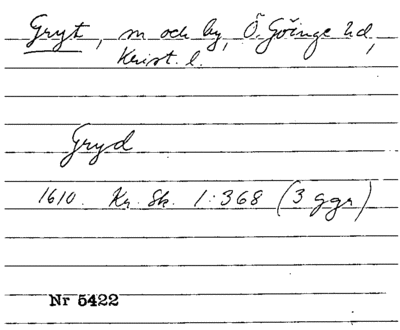 Gryt, m och by, Ö. Göinge hd,
Krist. l.
Gryd
1610. Kr. Sk. 1:368 (3 ggr)
Nr 5422